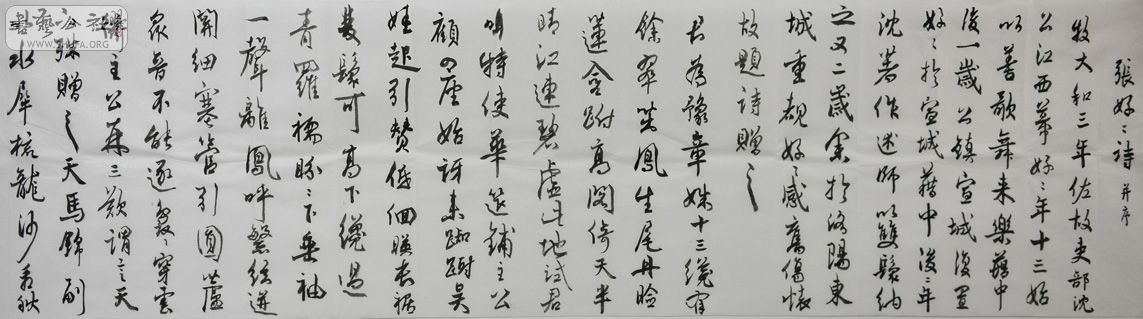 張好々詩 并序
牧大和三年佐故吏部沈
公江西幕好々年十三始
以善歌舞来樂籍中
後一歲公鎮宣城復置
好々於宣城籍中後二年
沈著作述師以雙鬟納
之又二歲余於洛陽東
城重覩好々感舊傷懷
故題詩贈之
君為豫章姝十三纔有
餘翠茁鳳生尾丹臉
蓮含跗高閣倚天半
晴江連碧虛此地試君
唱特使華筵鋪主公
顧四座始訝来踟躕吳
娃起引贊低佪暎長裾
雙鬟可高下纔過
青羅襦盼々下垂袖
一聲離鳳呼繁絃迸
關紐塞管引圓蘆
衆音不能逐裊々穿雲
衢主公再三歎謂言天
殊贈之天馬錦副
水犀梳龍沙看秋